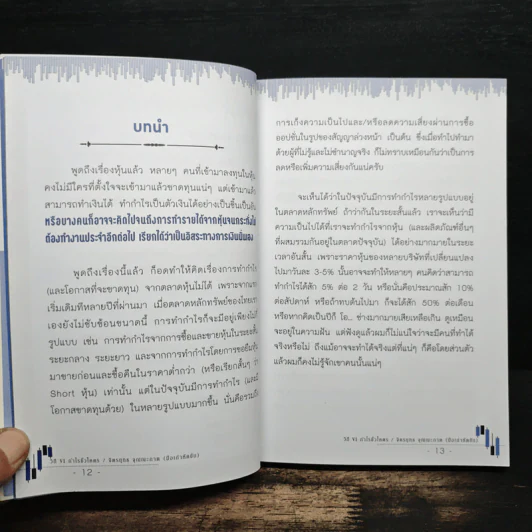 บทนำ
พูดถึงเรื่องหุ้นแล้ว หลายๆ คนที่เข้ามาลงทุนในหุ้น
คงไม่มีใครที่ตั้งใจจะเข้ามาแล้วขาดทุนแน่ๆ แต่เข้ามาแล้ว
สามารถทำเงินได้ ทำกำไรเป็นตัวเงินได้อย่างเป็นชิ้นเป็นอัน
หรือบางคนก็อาจจะคิดไปจนถึงการทำรายได้จากหุ้นจนกระทั่งไม่
ต้องทำงานประจำอีกต่อไป เรียกได้ว่าเป็นอิสระทางการเงินนั่นเอง
พูดถึงเรื่องนี้แล้ว ก็อดทำให้คิดเรื่องการทำกำไร
(และโอกาสที่จะขาดทุน) จากตลาดหุ้นไม่ได้ เพราะจาก
เริ่มเดิมทีหลายปีที่ผ่านมา เมื่อตลาดหลักทรัพย์ของไทย
เองยังไม่ซับซ้อนขนาดนี้ การทำกำไรก็จะมีอยู่เพียงไม่กี่
รูปแบบ เช่น การทำกำไรจากการซื้อและขายหุ้นในระยะสั้น
ระยะกลาง ระยะยาว และจากการทำกำไรโดยการขอยืมหุ้น
มาขายก่อนและซื้อคืนในราคาต่ำกว่า (หรือเรียกสั้นๆ ว่า
Short หุ้น) เท่านั้น แต่ในปัจจุบันมีการทำกำไร (และมี
โอกาสขาดทุนด้วย) ในหลายรูปแบบมากขึ้น นั่นคือรวมถึง
- 12 -
การเก็งความเป็นไปและ/หรือลดความเสี่ยงผ่านการซื้อ
ออปชั่นในรูปของสัญญาล่วงหน้า เป็นต้น ซึ่งเมื่อทำไปทำมา
ด้วยผู้ที่ไม่รู้และไม่ชำนาญจริง ก็ไม่ทราบเหมือนกันว่าเป็นการ
ลดหรือเพิ่มความเสี่ยงกันแน่ครับ
จะเห็นได้ว่าในปัจจุบันมีการทำกำไรหลายรูปแบบอยู่
ในตลาดหลักทรัพย์ ถ้าว่ากันในระยะสั้นแล้ว เราจะเห็นว่ามี
ความเป็นไปได้ที่เราจะทำกำไรจากหุ้น (และผลิตภัณฑ์อื่นๆ
ที่ผสมรวมกันอยู่ในตลาดปัจจุบัน) ได้อย่างมากมายในระยะ
เวลาอันสั้น เพราะราคาหุ้นของหลายบริษัทที่เปลี่ยนแปลง
ไปมาวันละ 3-5% นั้นอาจจะทำให้หลายๆ คนคิดว่าสามารถ
ทำกำไรได้สัก 5% ต่อ 2 วัน หรือนั่นคือประมาณสัก 10%
ต่อสัปดาห์ หรือถ้าทบต้นไปมา ก็จะได้สัก 50% ต่อเดือน
หรือหากคิดเป็นปีก็ โอ.. ช่างมากมายเสียเหลือเกิน ดูเหมือน
จะอยู่ในความฝัน แต่ฟังดูแล้วผมก็ไม่แน่ใจว่าจะมีคนที่ทำได้
จริงหรือไม่ ถึงแม้อาจจะทำได้จริงแต่ที่แน่ๆ ก็คือโดยส่วนตัว
แล้วผมก็คงไม่รู้จักเขาคนนั้นแน่ๆ
- 13 -